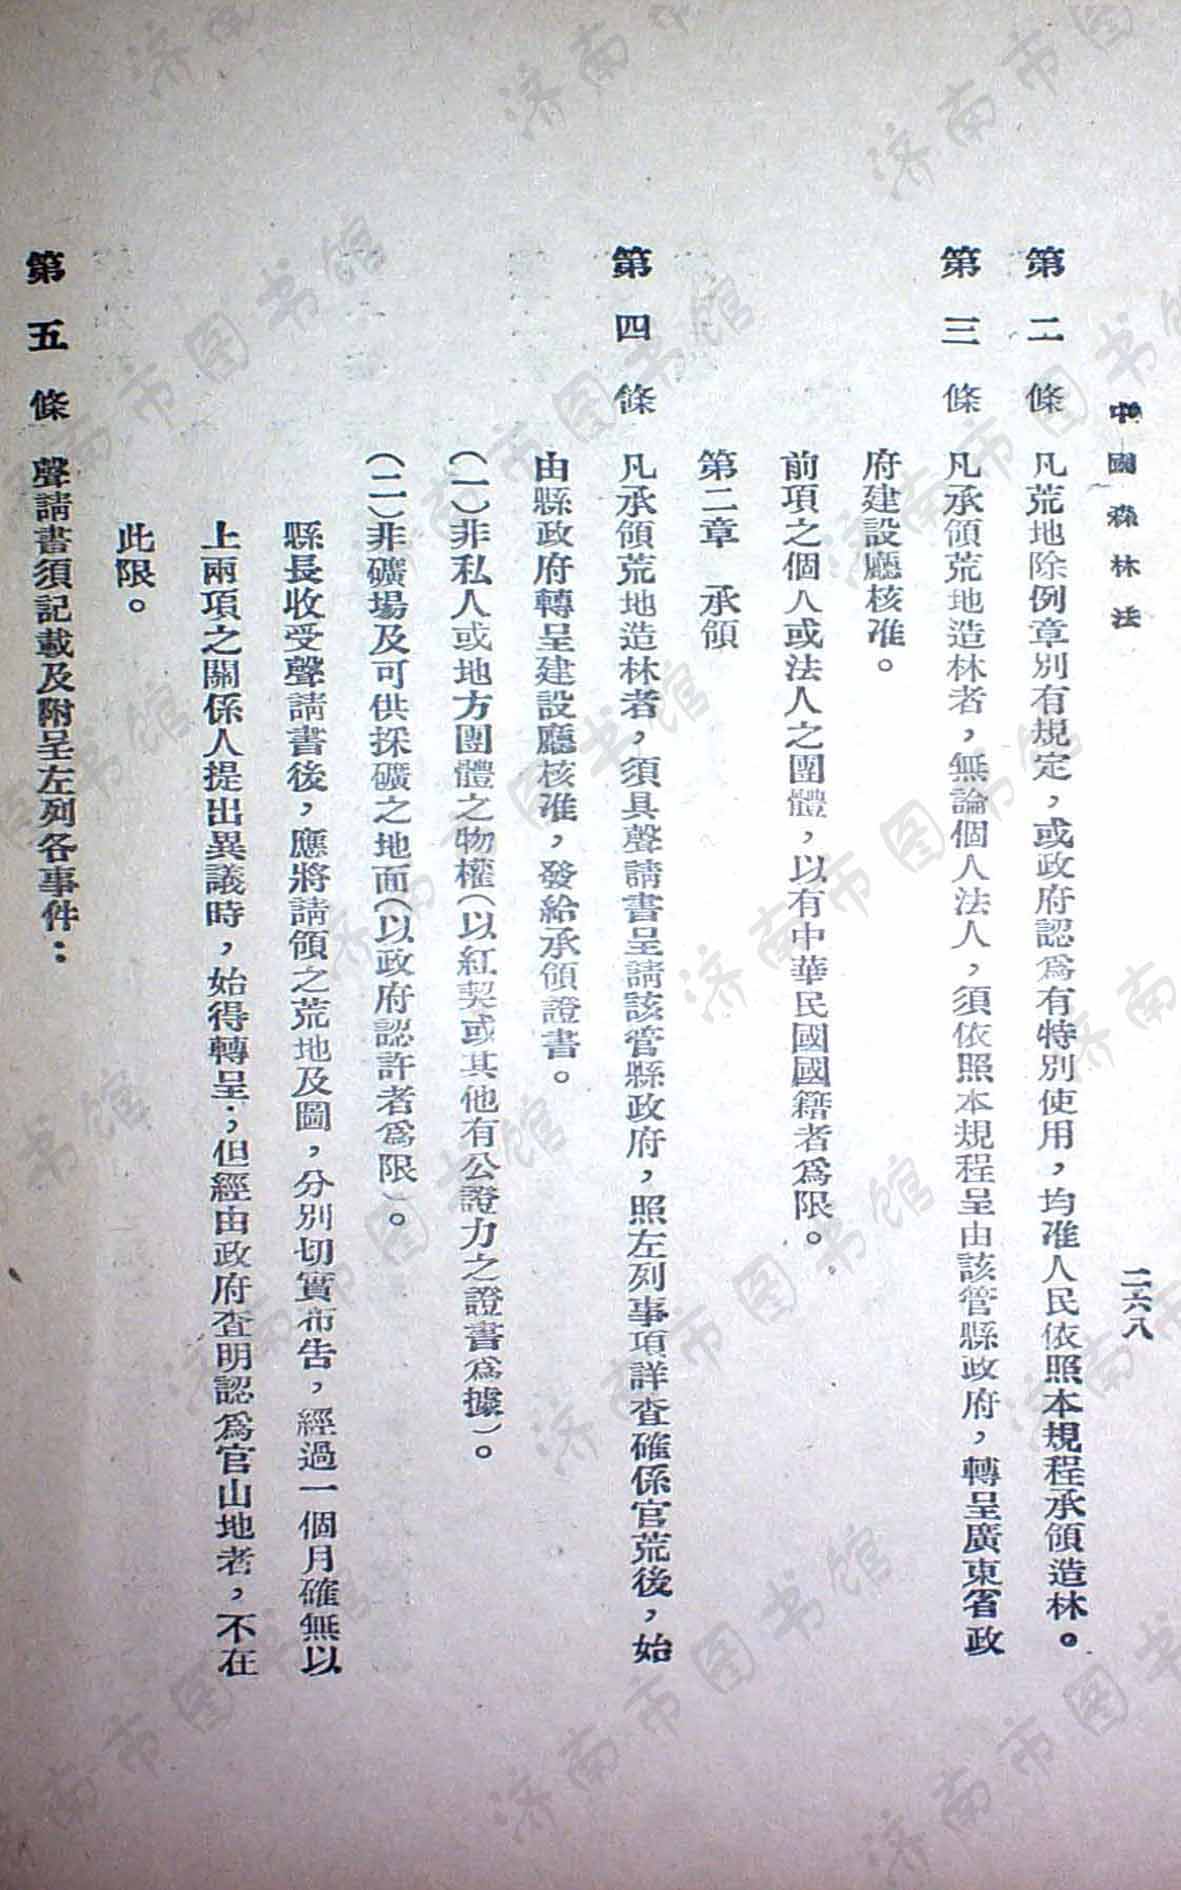 中國森林法
二六八
第二條 凡荒地除例章別有規定，或政府認爲有特別使用，均准人民依照本規程承領造林。
第三條 凡承領荒地造林者，無論個人法人，須依照本規程呈由該管縣政府，轉呈廣東省政
府建設廳核准。
前項之個人或法人之團體，以有中華民國國籍者爲限。
第二章 承領
第四條 凡承領荒地造林者，須具聲請書呈請該管縣政府，照左列事項詳查確係官荒後，始
由縣政府轉呈建設廳核准，發給承領證書。
(一)非私人或地方團體之物權(以紅契或其他有公證力之證書爲據)。
(二)非礦場及可供採礦之地面(以政府認許者爲限)。
縣長收受聲請書後，應將請領之荒地及圖，分別切實布告，經過一個月確無以
上兩項之關係人提出異議時，始得轉呈；但經由政府査明認爲官山地者，不在
此限。
第五條 聲請書須記載及附呈左列各事件：
济南市图书馆